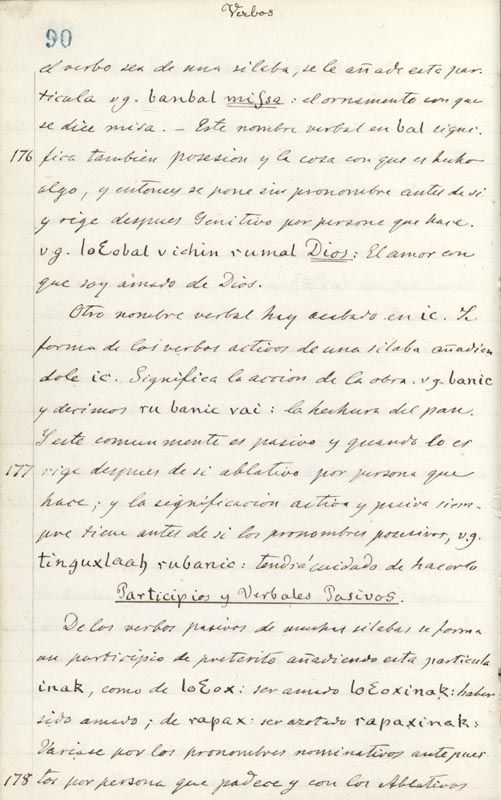 Verbos
90
el verbo sea de una silaba, se le añade esta par-
ticula vg. banbal missa: el ornamento con que
se dice misa. – Este nombre verbal en bal signi-
176 fica tambien posesion y la cosa con que es hecho
algo, y entonces se pone sin pronombre antes de si
y rige despues Genitivo por persona que hace.
v.g. loƐobal vichin rumal Dios: El amor con
que soy amado de Dios.
Otro nombre verbal hay acabado en ic. Se
forma de los verbos activos de una silaba añadien
dole ic. Significa la accion de la obra. vg. banic
y decimos ru banic vai: la hechura del pan.
Y este comunmente es pasivo y quando lo es
177 rige despues de si ablativo por persona que
hace; y la significacion activa y pasiva siem-
pre tiene antes de si los pronombres posesivos, v.g.
tinguxlaah rubanic: tendré cuidado de hacerlo
Participios y Verbales Pasivos.
De los verbos pasivos de muchas silabas se forma
un participio de preterito añadiendo esta particula
inak, como de loƐox: ser amado loƐoxinak: haber
sido amado; de rapax: ser azotado rapaxinak:
Variase por los pronombres nominativos antepues
178 tos por persona que padece y con los Ablativos